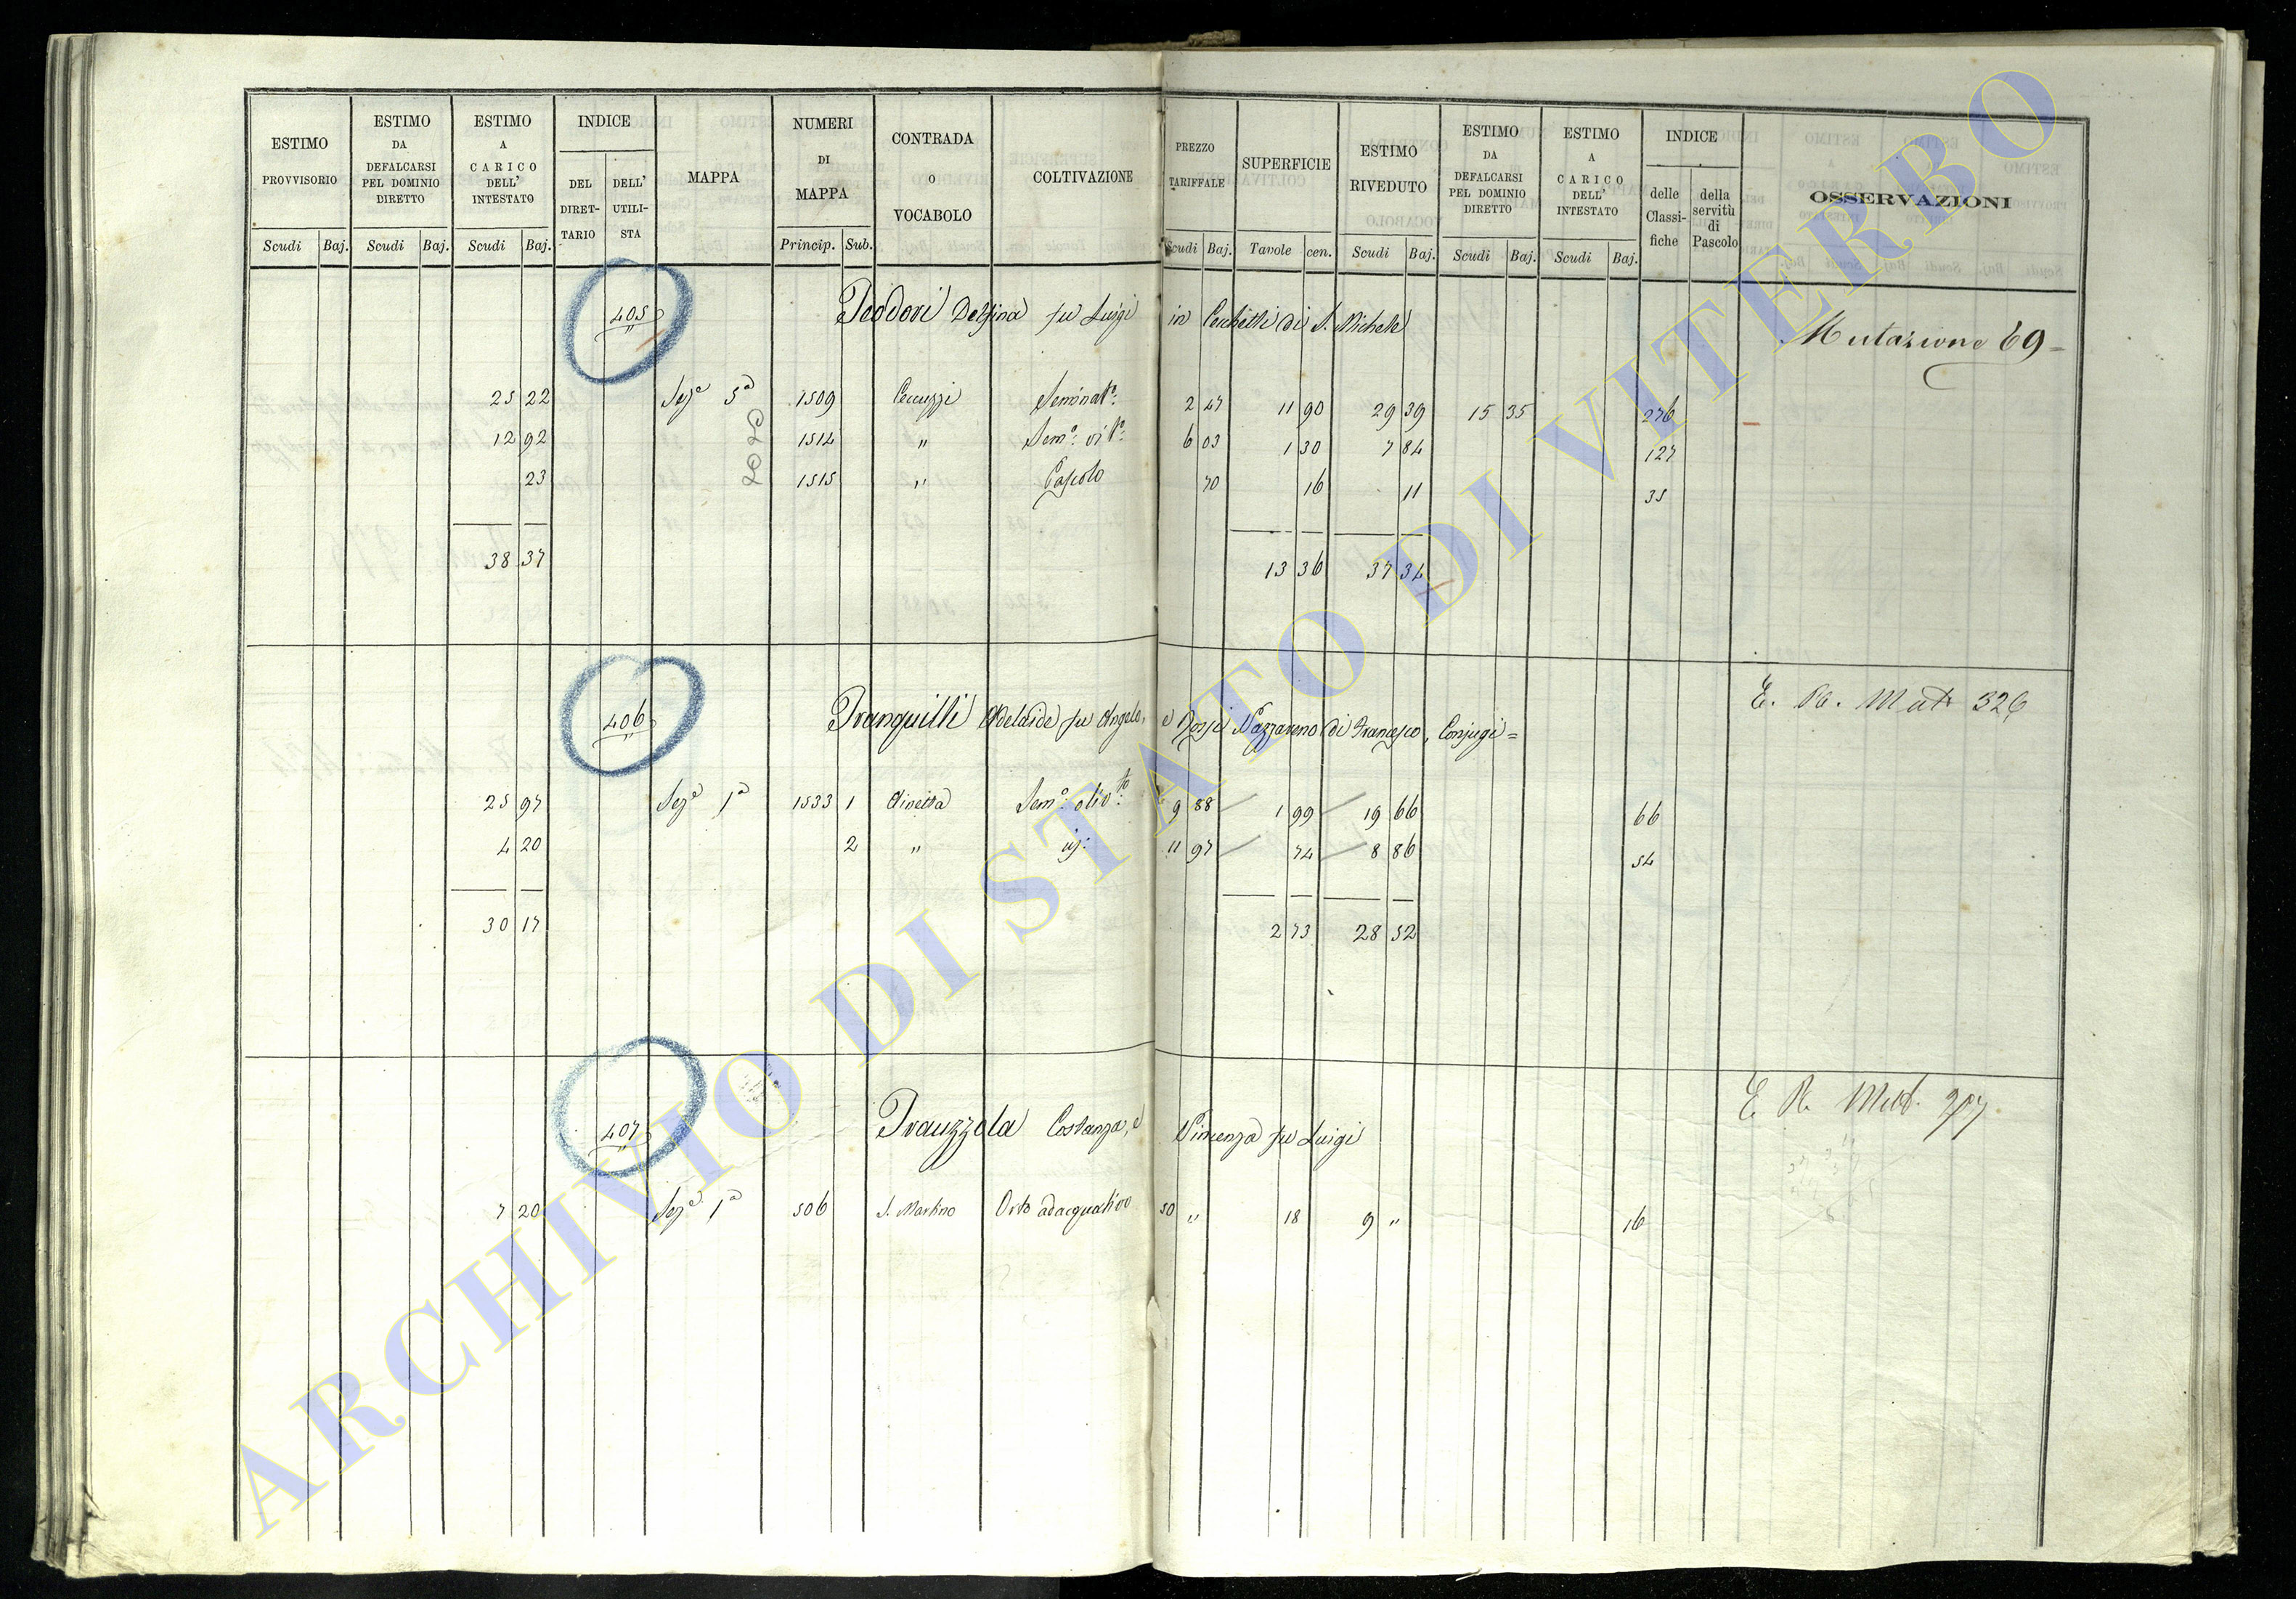 ESTIMO PROVVISORIO Scudi Baj.
ESTIMO DA DEFALCARSI PEL DOMINIO DIRETTO Scudi Baj.
ESTIMO A CARICO DELL' INTESTATO Scudi Baj.
INDICE DEL DIRET-TARIO DELL' UTILI-STA
MAPPA
NUMERI DI MAPPA Princip. Sub.
CONTRADA O VOCABOLO
COLTIVAZIONE
PREZZO TARIFFALE Scudi Baj.
SUPERFICIE Tavole cen.
ESTIMO RIVEDUTO Scudi Baj.
ESTIMO DA DEFALCARSI PEL DOMINIO DIRETTO Scudi Baj.
ESTIMO A CARICO DELL' INTESTATO Scudi Baj.
INDICE delle Classi-fiche della servitù di Pascolo
OSSERVAZIONI
405 Teodori Delfina fu Luigi in Cechetti di S. Michele Mutazione 69=
25 22 Seze 5a 1509 Cecuzzi Seminato: 2 47 11 90 29 39 15 35 276
12 92 1514 " Semo: vito: 6 03 1 30 7 84 127
23 1515 " Pascolo 70 16 11 35
38 37 13 36 37 34
406 Tranquilli Adelaide fu Angelo, e Rossi Nazzareno di Francesco, Conjugi= E. R. Mut 326
25 97 Seze 1a 1533 1 Semo: olivto: 9 88 1 99 19 66 66
4 20 2 " 11 97 74 8 86 54
30 17 2 73 28 52
407 Trauzzola Costanza, e Vincenza fu Luigi E R. Mut.
7 20 Seze 1a 506 S. Martino Orto adacquativo 50 " 18 9 " 16
ARCHIVIO DI STATO DI VITERBO